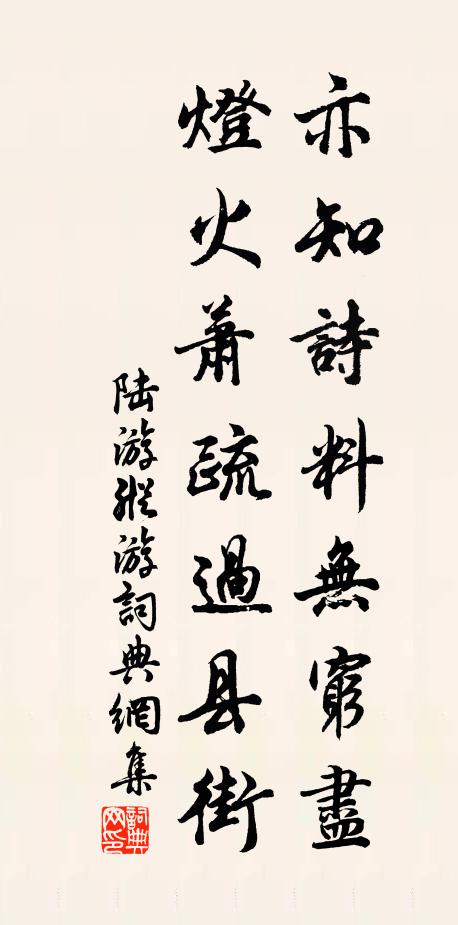 亦知詩料無窮盡
燈火蕭疏過县街
陆游縱游詞典網集
詞典网印